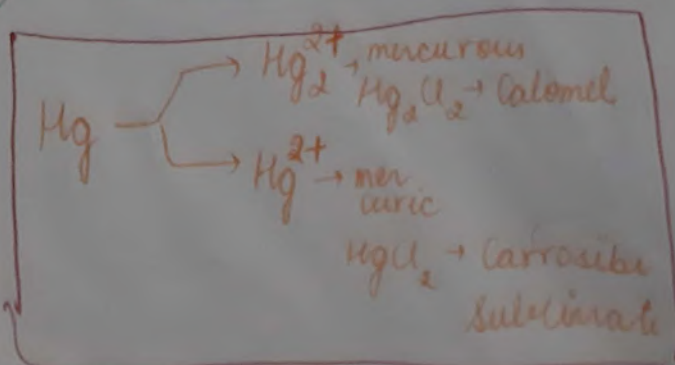 Hg
Hg₂²⁺ → mercurous
Hg₂Cl₂ → Calomel
Hg²⁺ → mer
curic
HgCl₂ → Carrosibe
Sublimate